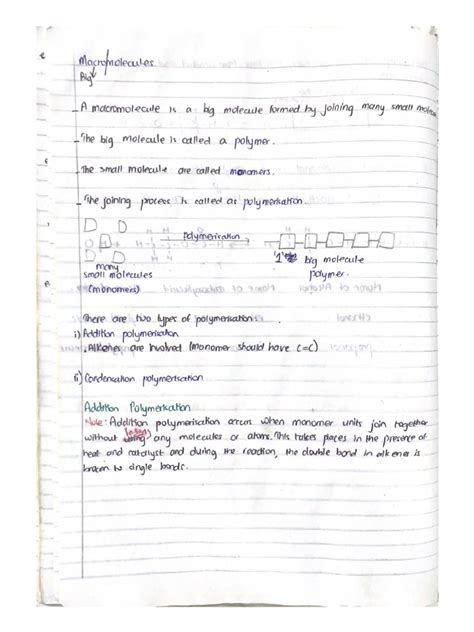 Macromolecules
Big
- A macromolecule is a big molecule formed by joining many small
- The big molecule is called a polymer.
- The small molecule are called monomers.
- The joining process is called as polymerisation.
Polymerisation
many small molecules (monomers)
'1' big molecule
polymer.
There are two types of polymerisation
i) Addition polymerisation
. Alkenes are involved (Monomer should have C=C)
ii) Condensation polymerisation
Addition Polymerisation
Note: Addition polymerisation occurs when monomer units join together
without losing any molecules or atoms. This takes places in the presence of
heat and catalyst and during the reaction, the double bond in alkenes is
broken to single bonds.